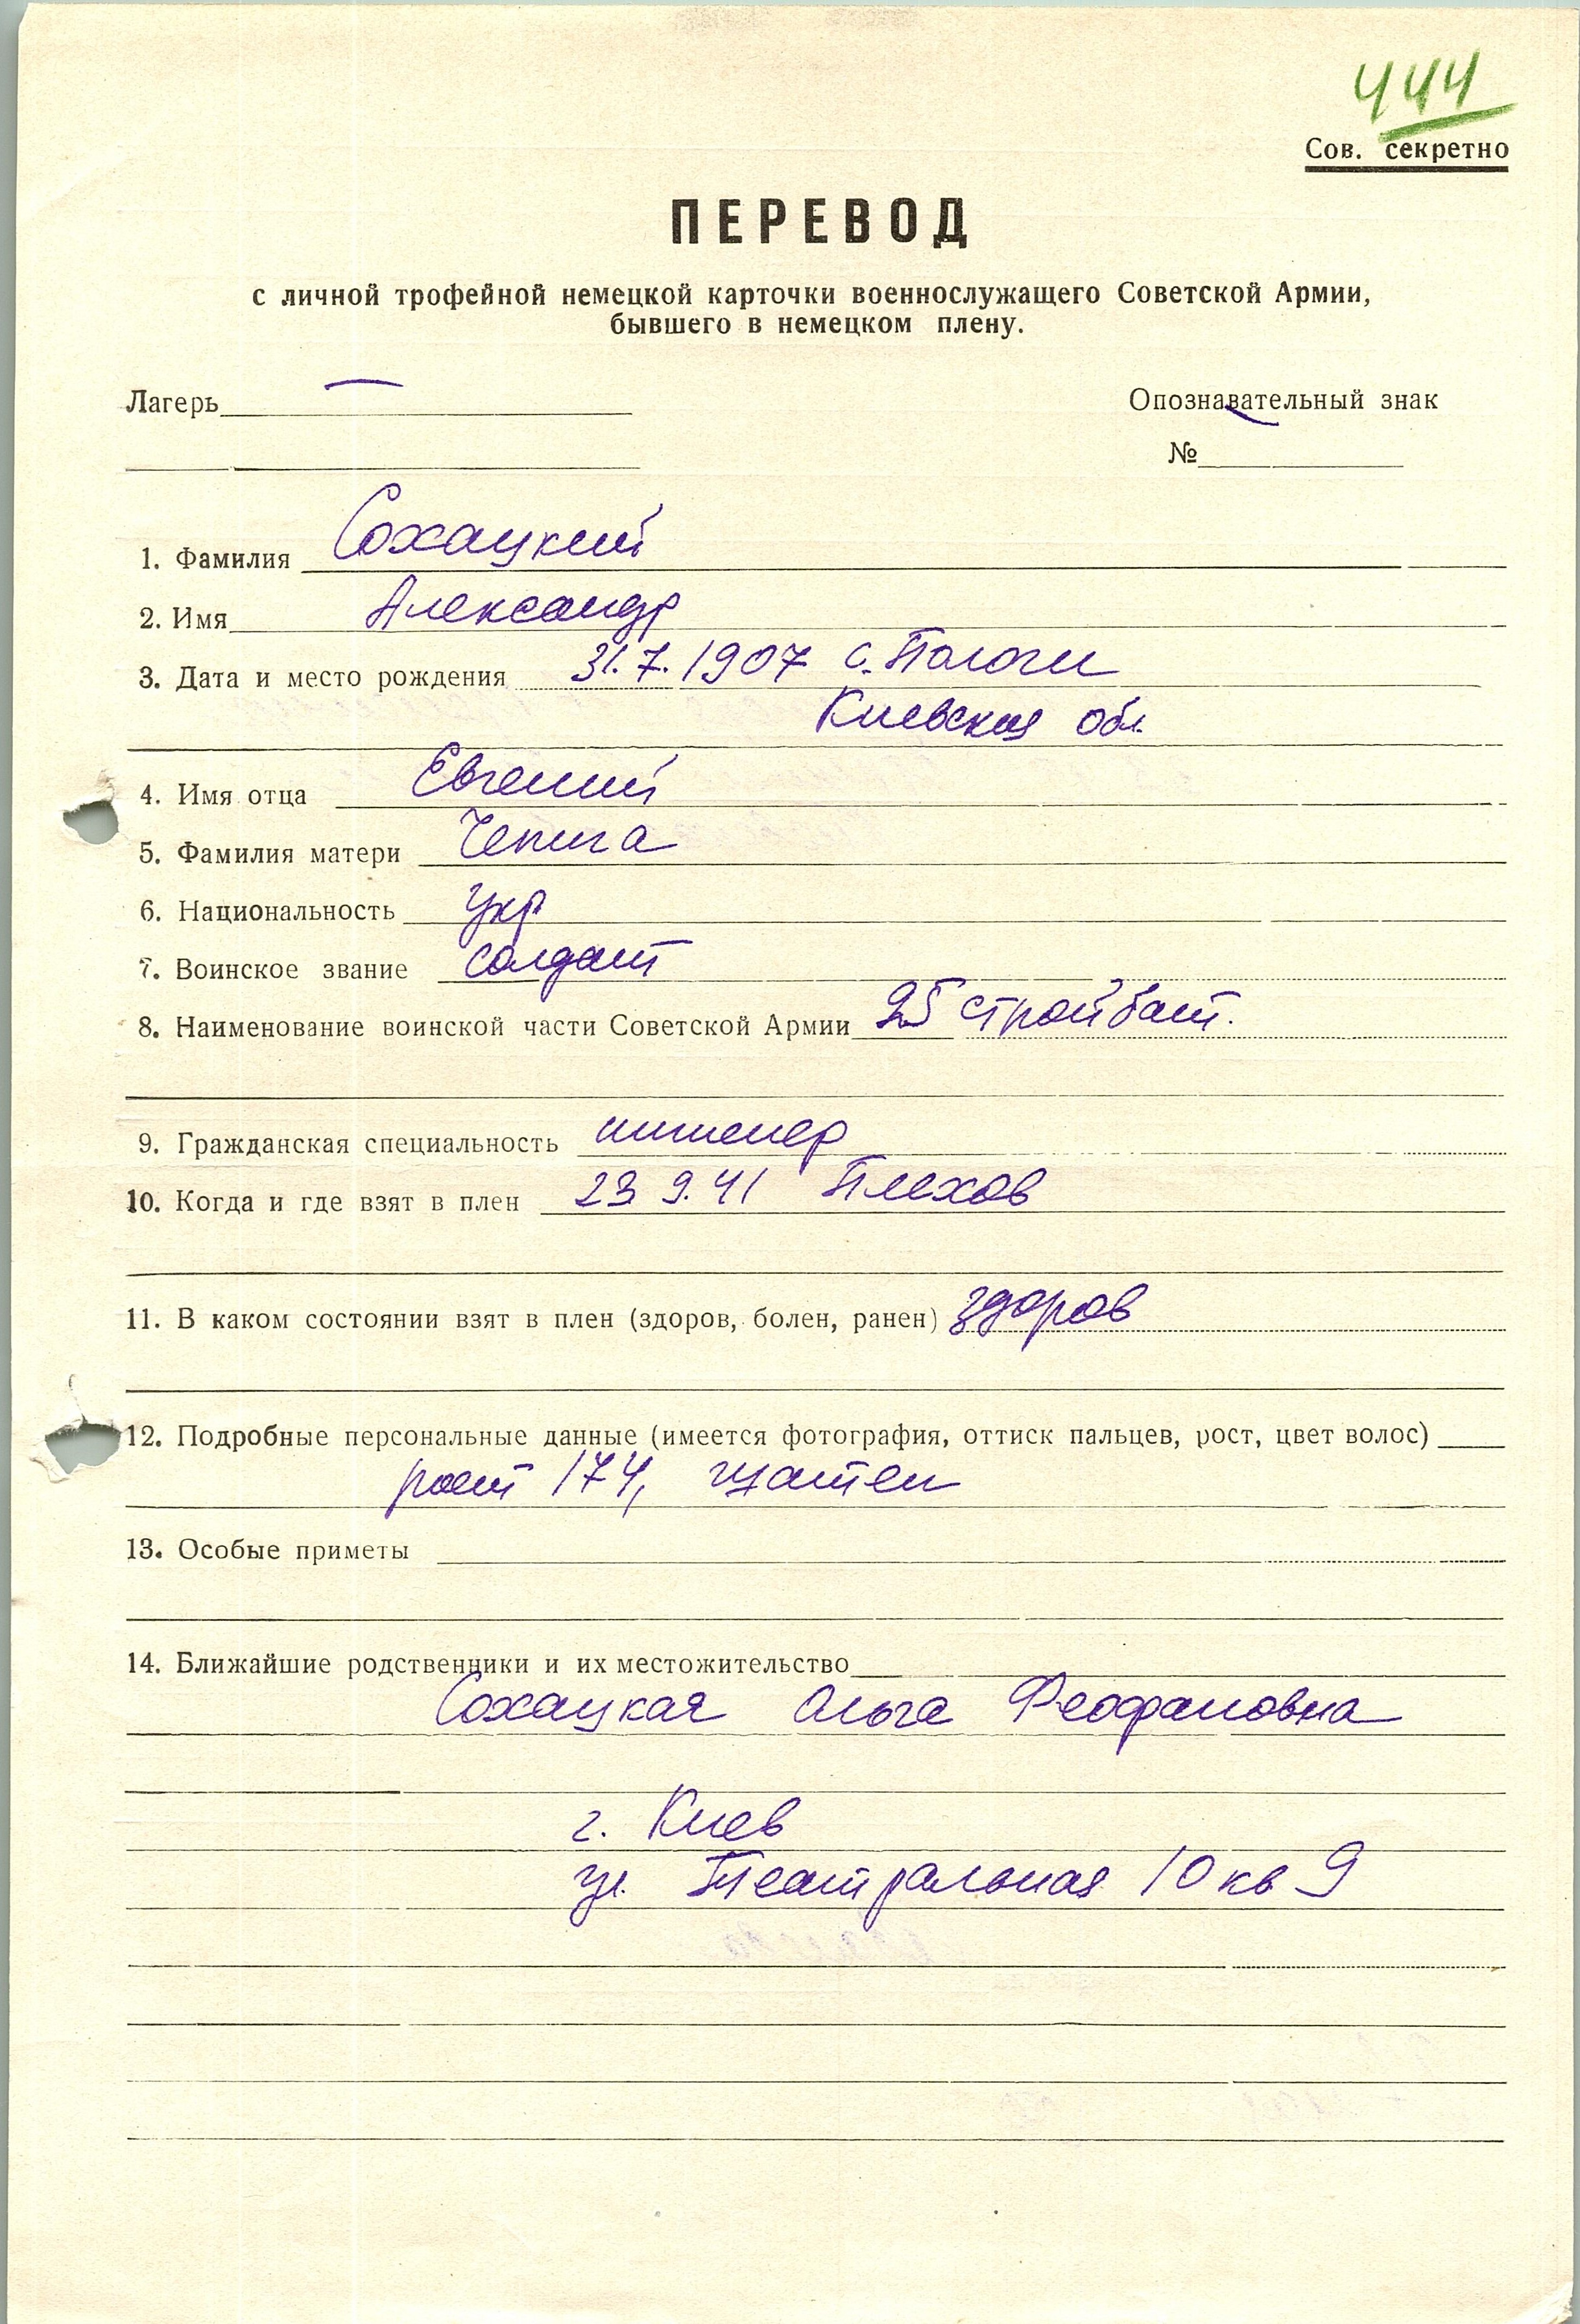 444
Сов. секретно
ПЕРЕВОД
с личной трофейной немецкой карточки военнослужащего Советской Армии,
бывшего в немецком плену.
Лагерь — Опознавательный знак
№ —
1. Фамилия Сохацкий
2. Имя Александр
3. Дата и место рождения 31.7.1907 с. Пологи
Киевская обл.
4. Имя отца Евгений
5. Фамилия матери Чепига
6. Национальность укр
7. Воинское звание солдат
8. Наименование воинской части Советской Армии 25 стройбат.
9. Гражданская специальность инженер
10. Когда и где взят в плен 23 9.41 Плехов
11. В каком состоянии взят в плен (здоров, болен, ранен) здоров
12. Подробные персональные данные (имеется фотография, оттиск пальцев, рост, цвет волос)
рост 174, шатен
13. Особые приметы
14. Ближайшие родственники и их местожительство
Сохацкая Ольга Феофановна
г. Киев
ул. Театральная 10 кв 9